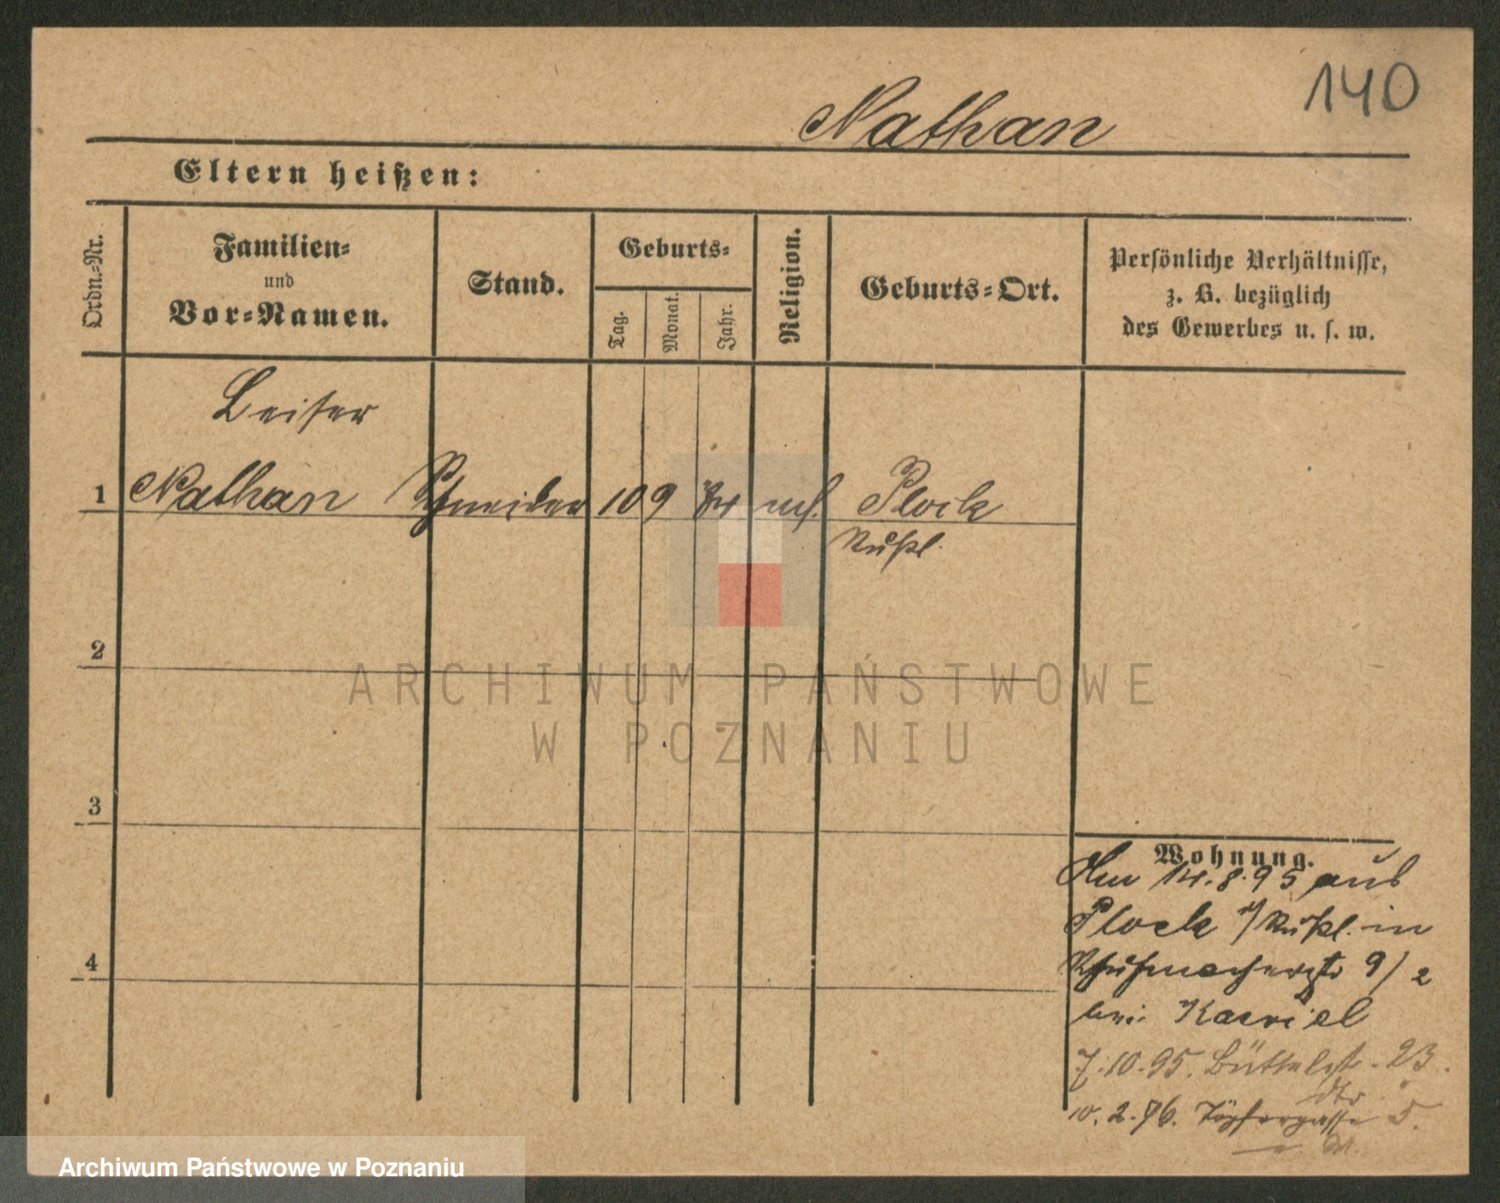 140
Nathan
Eltern heißen:
Ordn.-Nr.
Familien-
und
Vor-Namen.
Stand.
Geburts-
Tag.
Monat.
Jahr.
Religion.
Geburts-Ort.
Persönliche Verhältnisse,
z. B. bezüglich
des Gewerbes u. s. w.
Leiser
1 Nathan Schneider 10 9 mos. Plock
Rußl.
2
3
4
Wohnung.
Am 14.8.95 aus
Plock i/Rußl. in
Schuhmacherstr 9/2
bei Kasriel
7.10.95. Büttelst. 23.
10.2.96. Töpfergasse 5.
ARCHIWUM PAŃSTWOWE
W POZNANIU
Archiwum Państwowe w Poznaniu